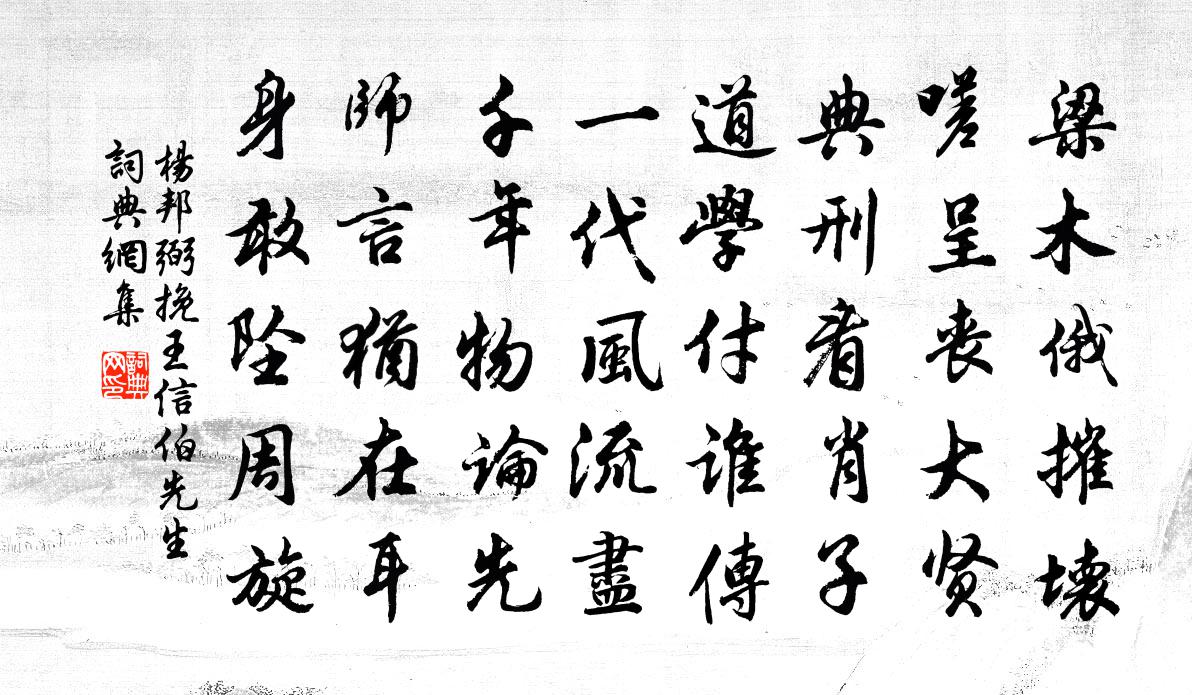 梁木俄摧壞
嗟呈丧大贤
典刑看肖子
道學付誰傳
一代風流盡
千年物論先
師言猶在耳
身敢坠周旋
楊邦弼挽王信伯先生
詞典網集
詞典网印